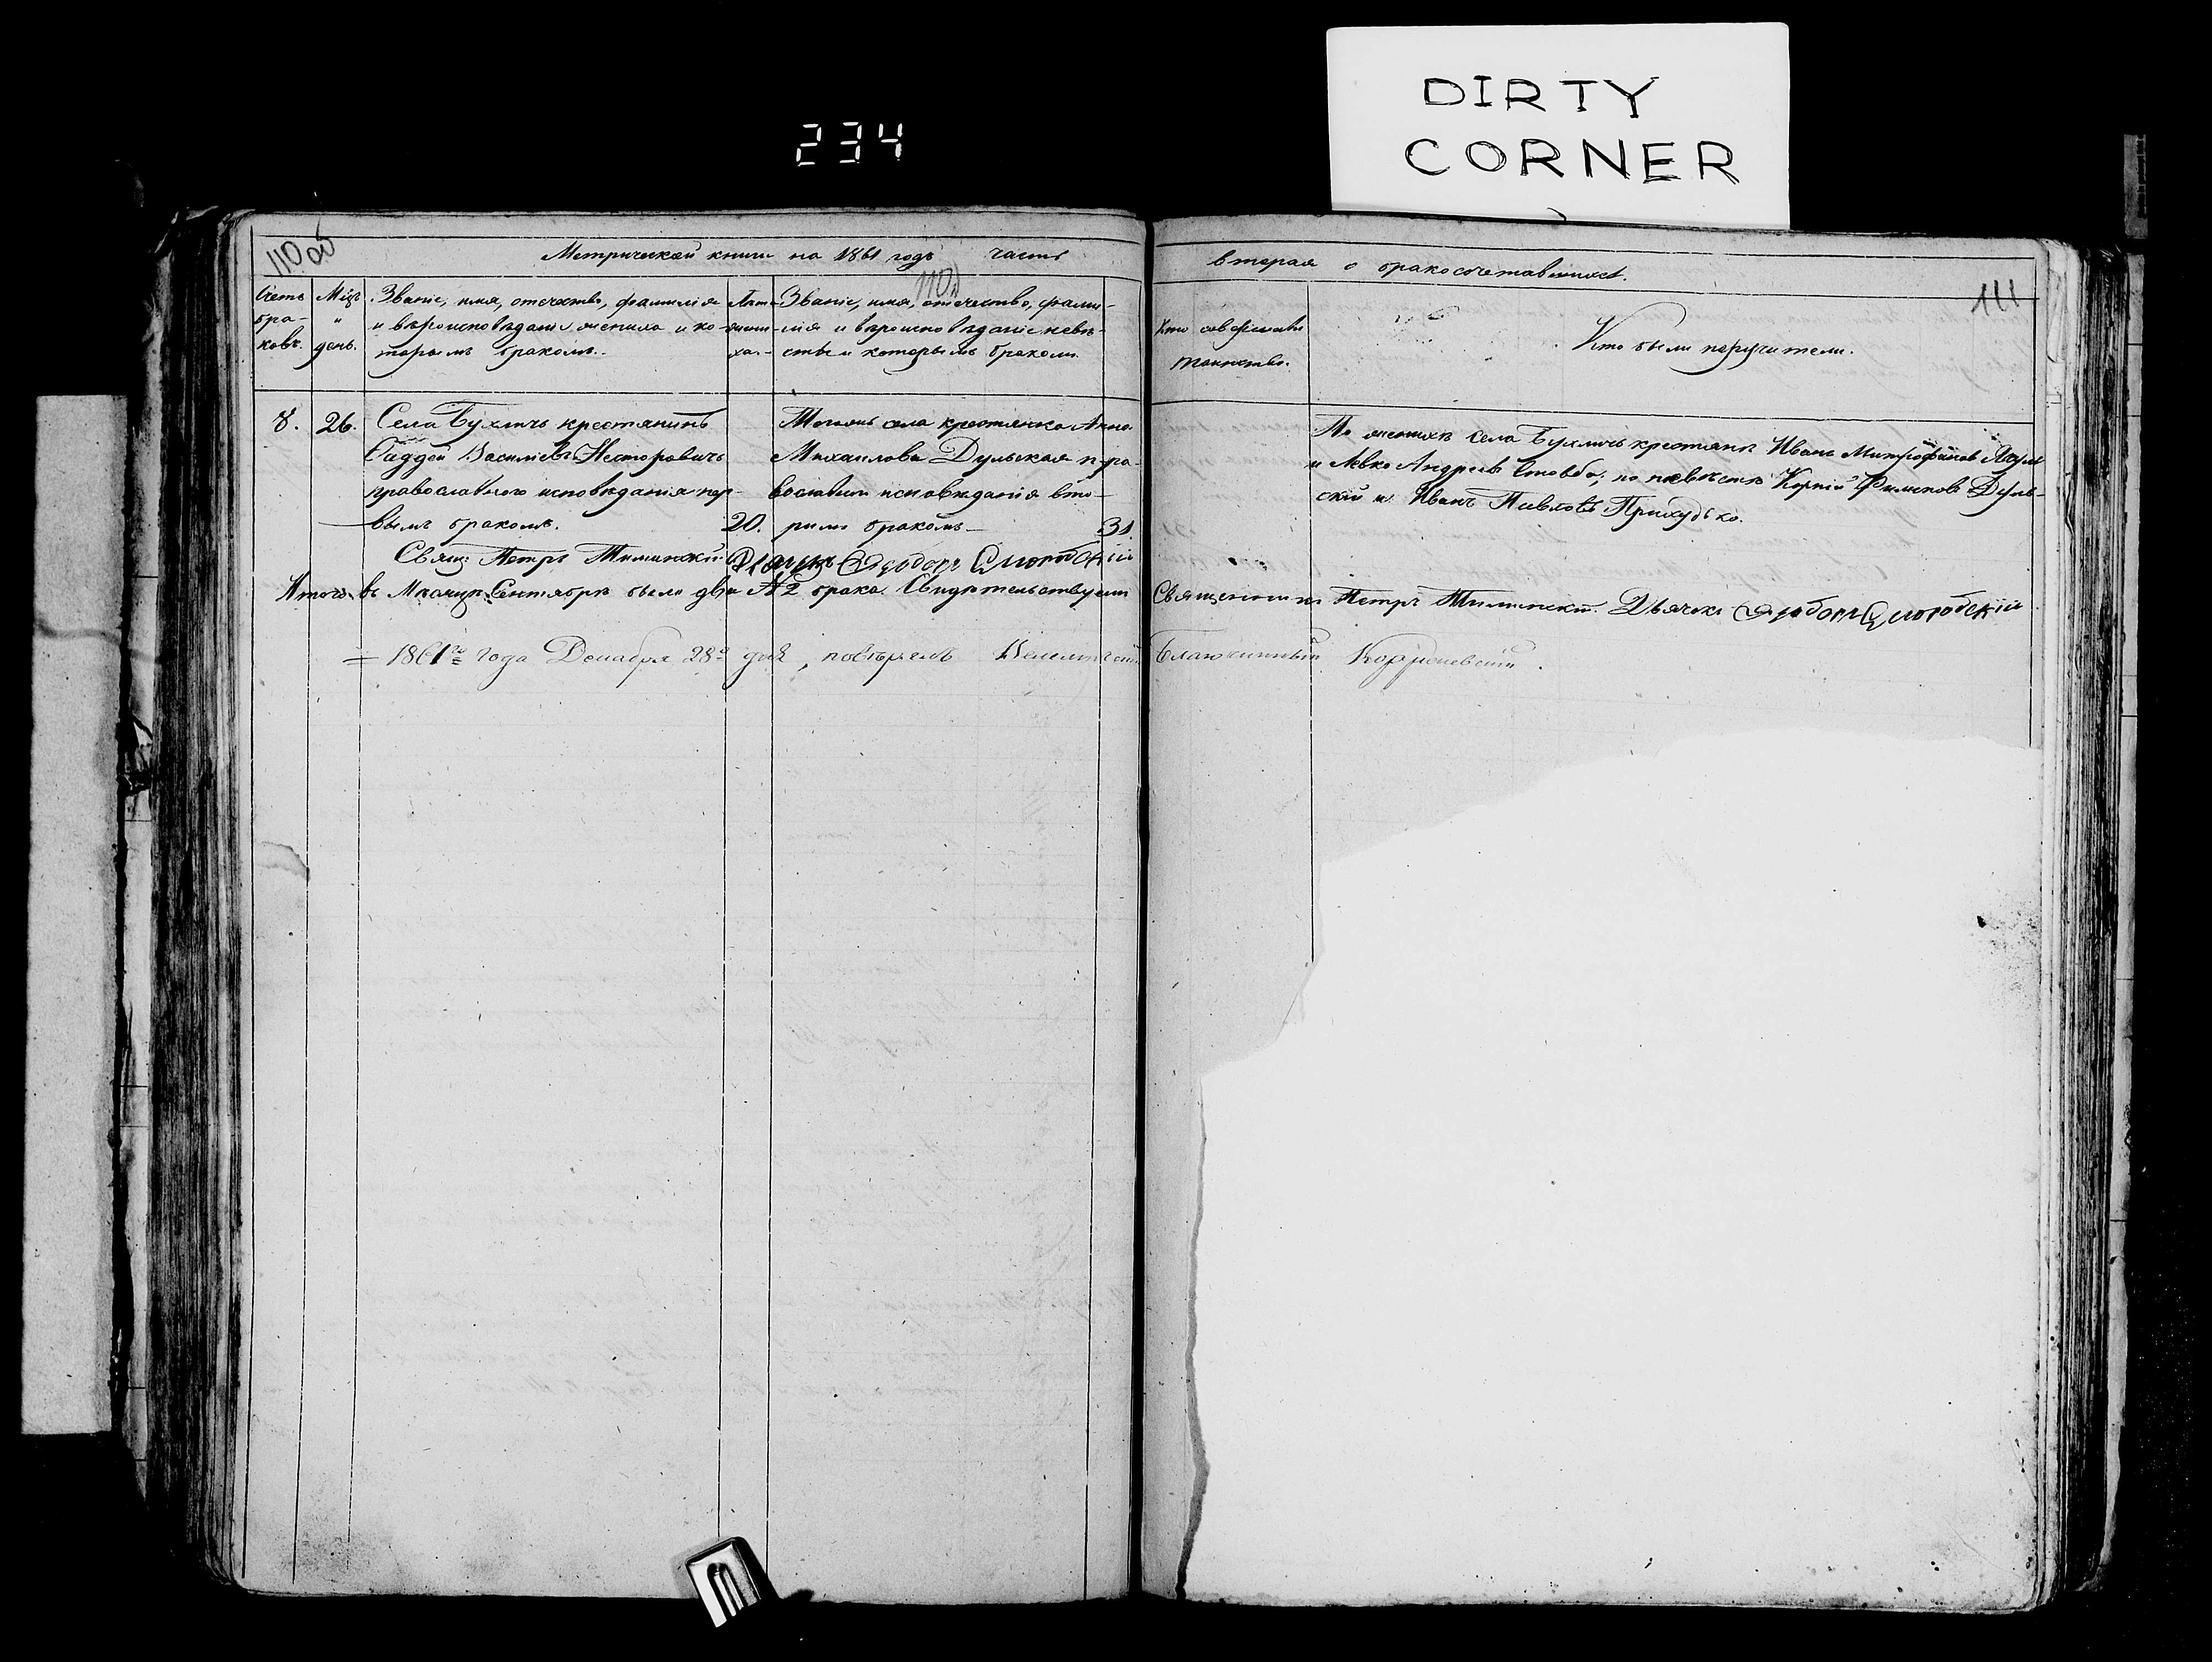 DIRTY
CORNER
234
110 об
Метрической книги на 1861 годъ часть вторая о бракосочетавшихся.
110.
111
Счетъ бра-ковъ.
Мѣц. и день.
Званіе, имя, отечество, фамилія
и вѣроисповѣданіе жениха и ко-
торымъ бракомъ.
Лѣта жени-ха.
Званіе, имя, отечество, фами-
лія и вѣроисповѣданіе невѣ-
сты и которымъ бракомъ.
Кто совершалъ
таинство.
Кто были поручители.
8. 26.
Села Бухличъ крестянинъ
Василіевъ Несторовичъ
православного исповѣданія пер-
вымъ бракомъ. 20.
Тогожъ села крестянка Анна
Михаилова Дульская пра-
вославного исповѣданія вто-
римъ бракомъ 31.
По женихѣ села Бухличъ крестяне Иванъ Митрофановъ
и Левко Андреевъ Стовба; по невѣстѣ Корній Дуль-
скій и Иванъ Павловъ Приходько.
Свящ: Петръ Дьячекъ Феодоръ
Итого въ Месяцѣ Сентябрѣ было два № 2 брака Свидѣтельствуемъ Священникъ Петръ Дьячекъ Феодоръ
1861го года Декабря 28го дня, повѣрялъ Благочинный